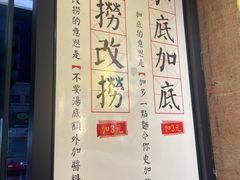 加底加底
加底的意思是【加多一點麵令你更加
撈改撈
改撈的意思是【不要湯底額外加醬料